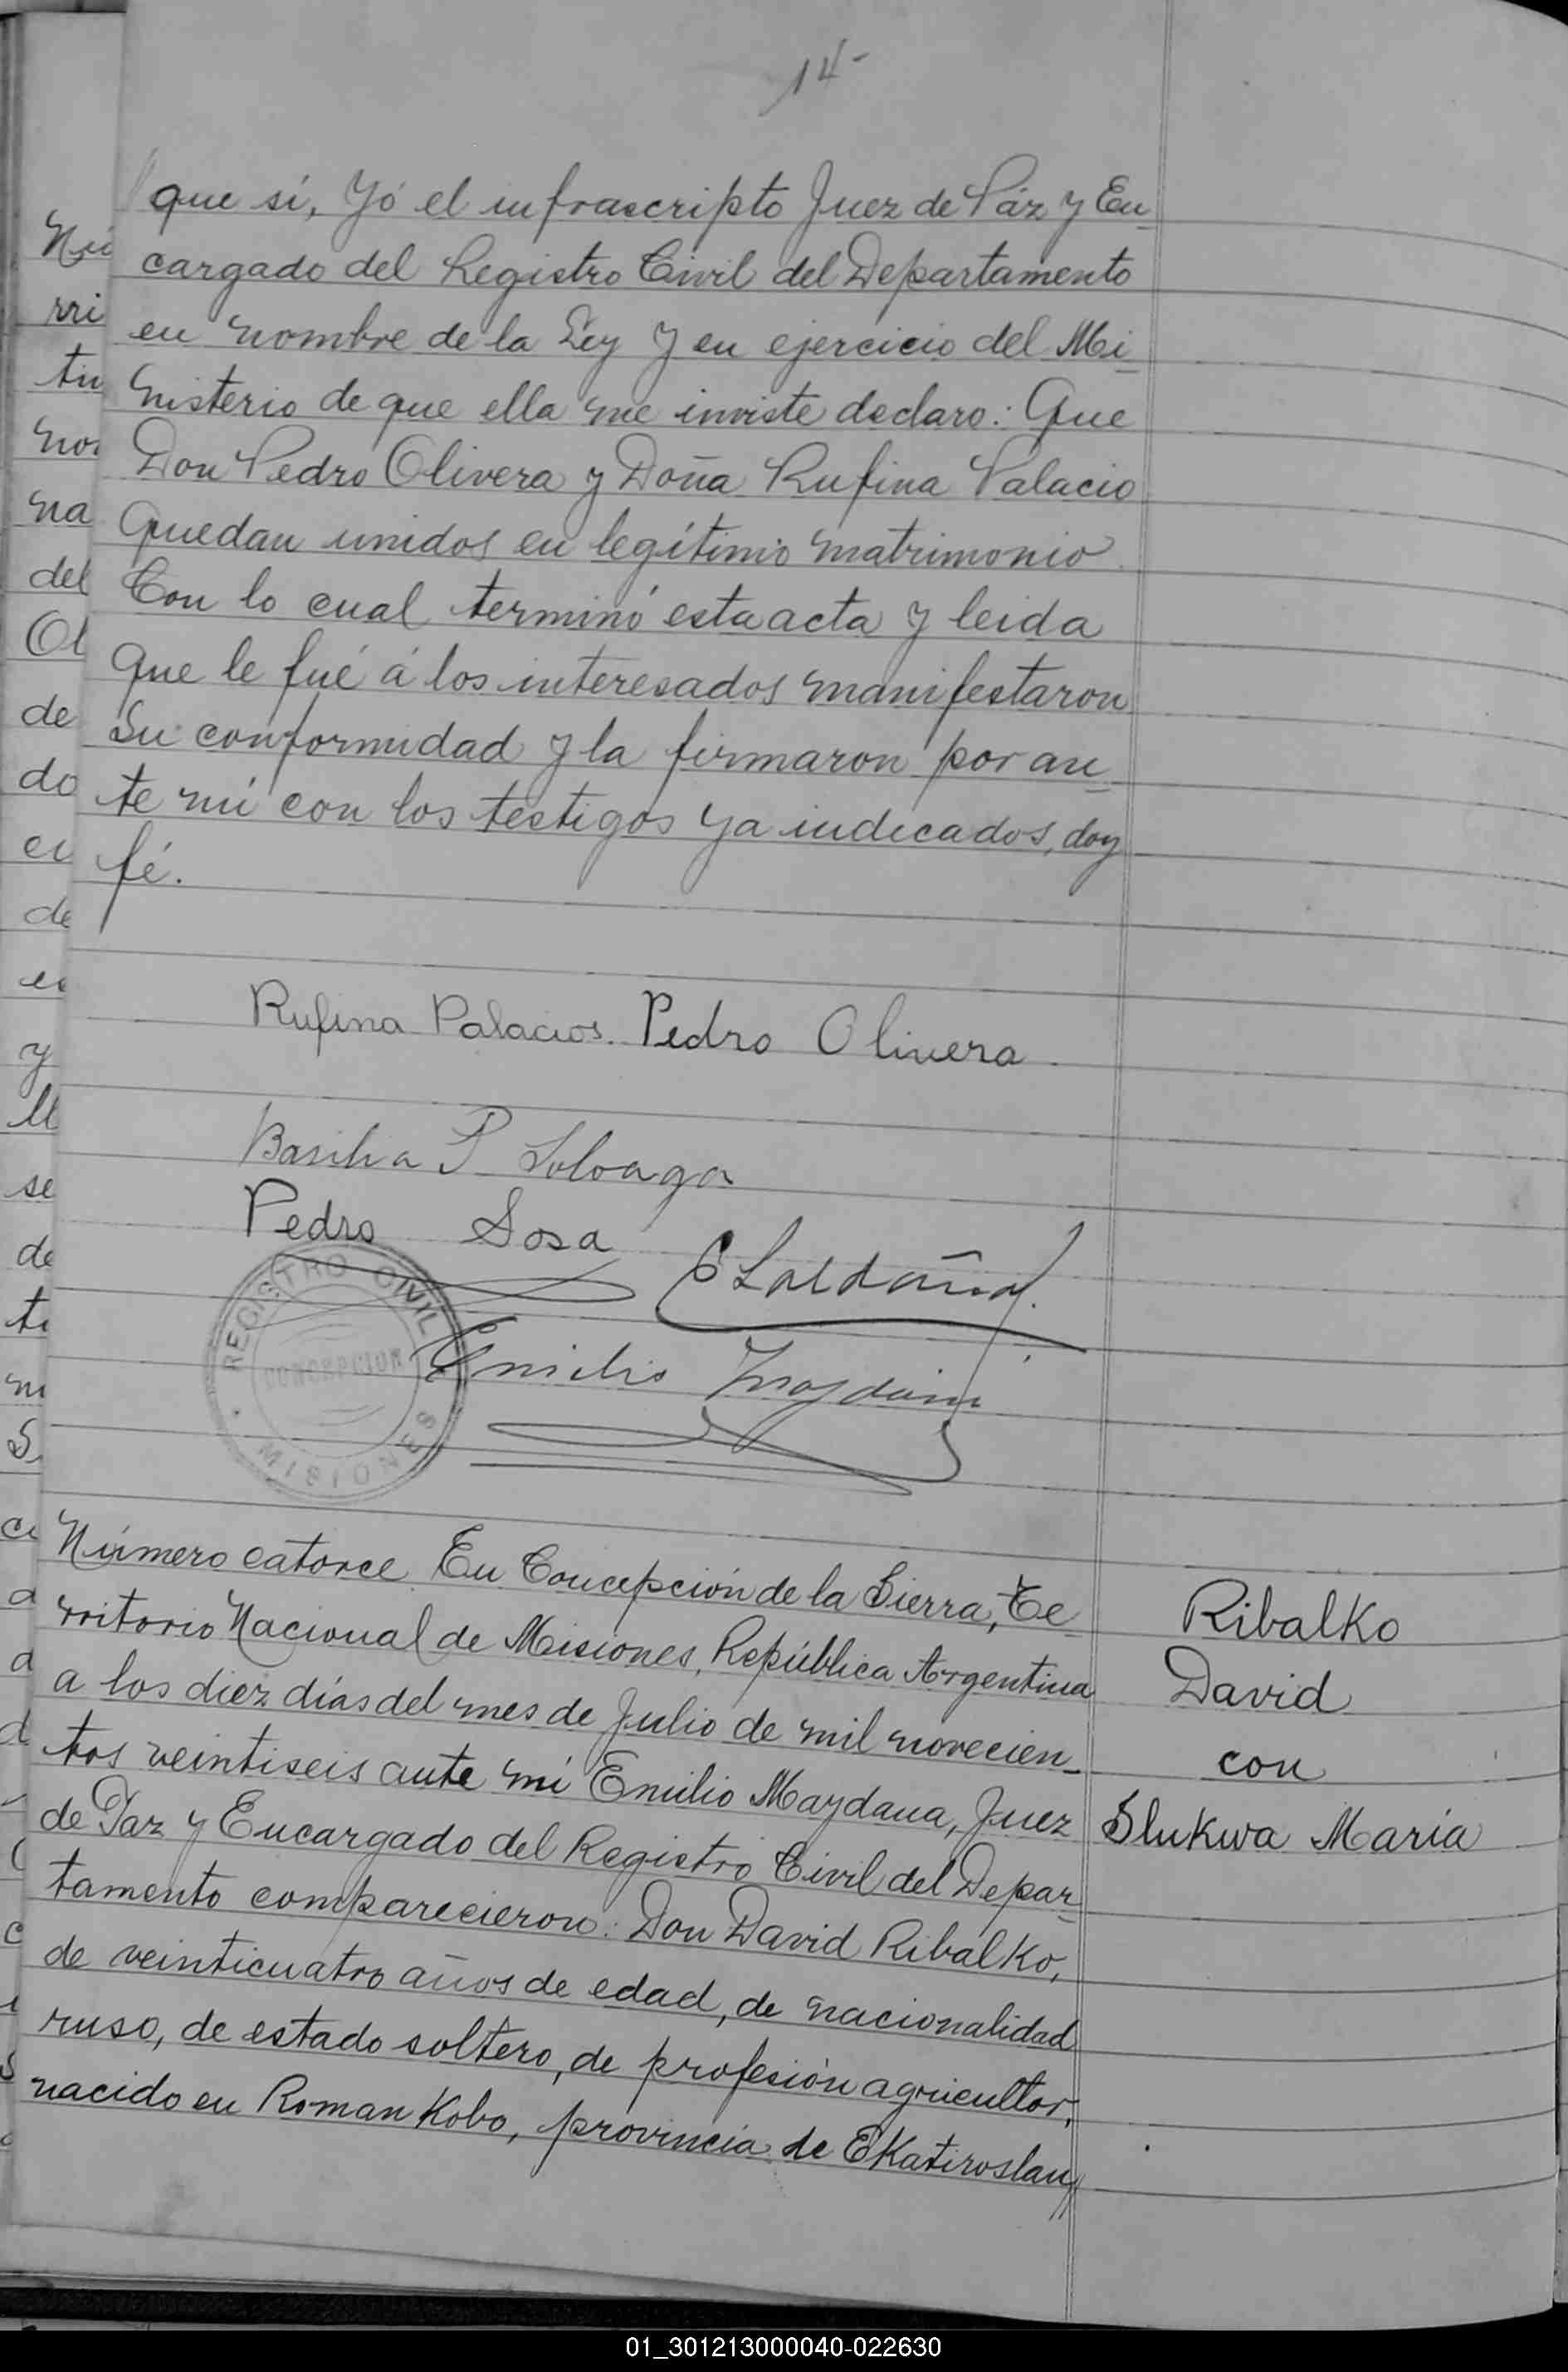 14-
que sí, Yó el infrascripto Juez de Páz y En
cargado del Registro Civil del Departamento
en nombre de la Ley y en ejercicio del Mi
nisterio de que ella me inviste declaro: Que
Don Pedro Olivera y Doña Rufina Palacio
quedan unidos en legítimo matrimonio.
Con lo cual terminó esta acta y leida
que le fué á los interesados manifestaron
su conformidad y la firmaron por an
te mí con los testigos ya indicados, doy
fé.
Rufina Palacios. Pedro Olivera
Basilia P Loloaga
Pedro Sosa
E Saldaña
REGISTRO CIVIL
CONCEPCION
MISIONES
Emilio
Número catorce En Concepción de la Sierra, Te
rritorio Nacional de Misiones, República Argentina
a los diez días del mes de Julio de mil novecien-
tos veintiseis ante mí Emilio Maydana, Juez
de Paz y Encargado del Registro Civil del Depar
tamento comparecieron: Don David Ribalko,
de veinticuatro años de edad, de nacionalidad
ruso, de estado soltero, de profesión agricultor,
nacido en Roman Kobo, provincia de Ekatiroslau,
Ribalko
David
con
Slukwa María
Nú
rri
tu
no
na
del
Ol
de
do
en
de
y
ll
se
de
te
01_301213000040-022630